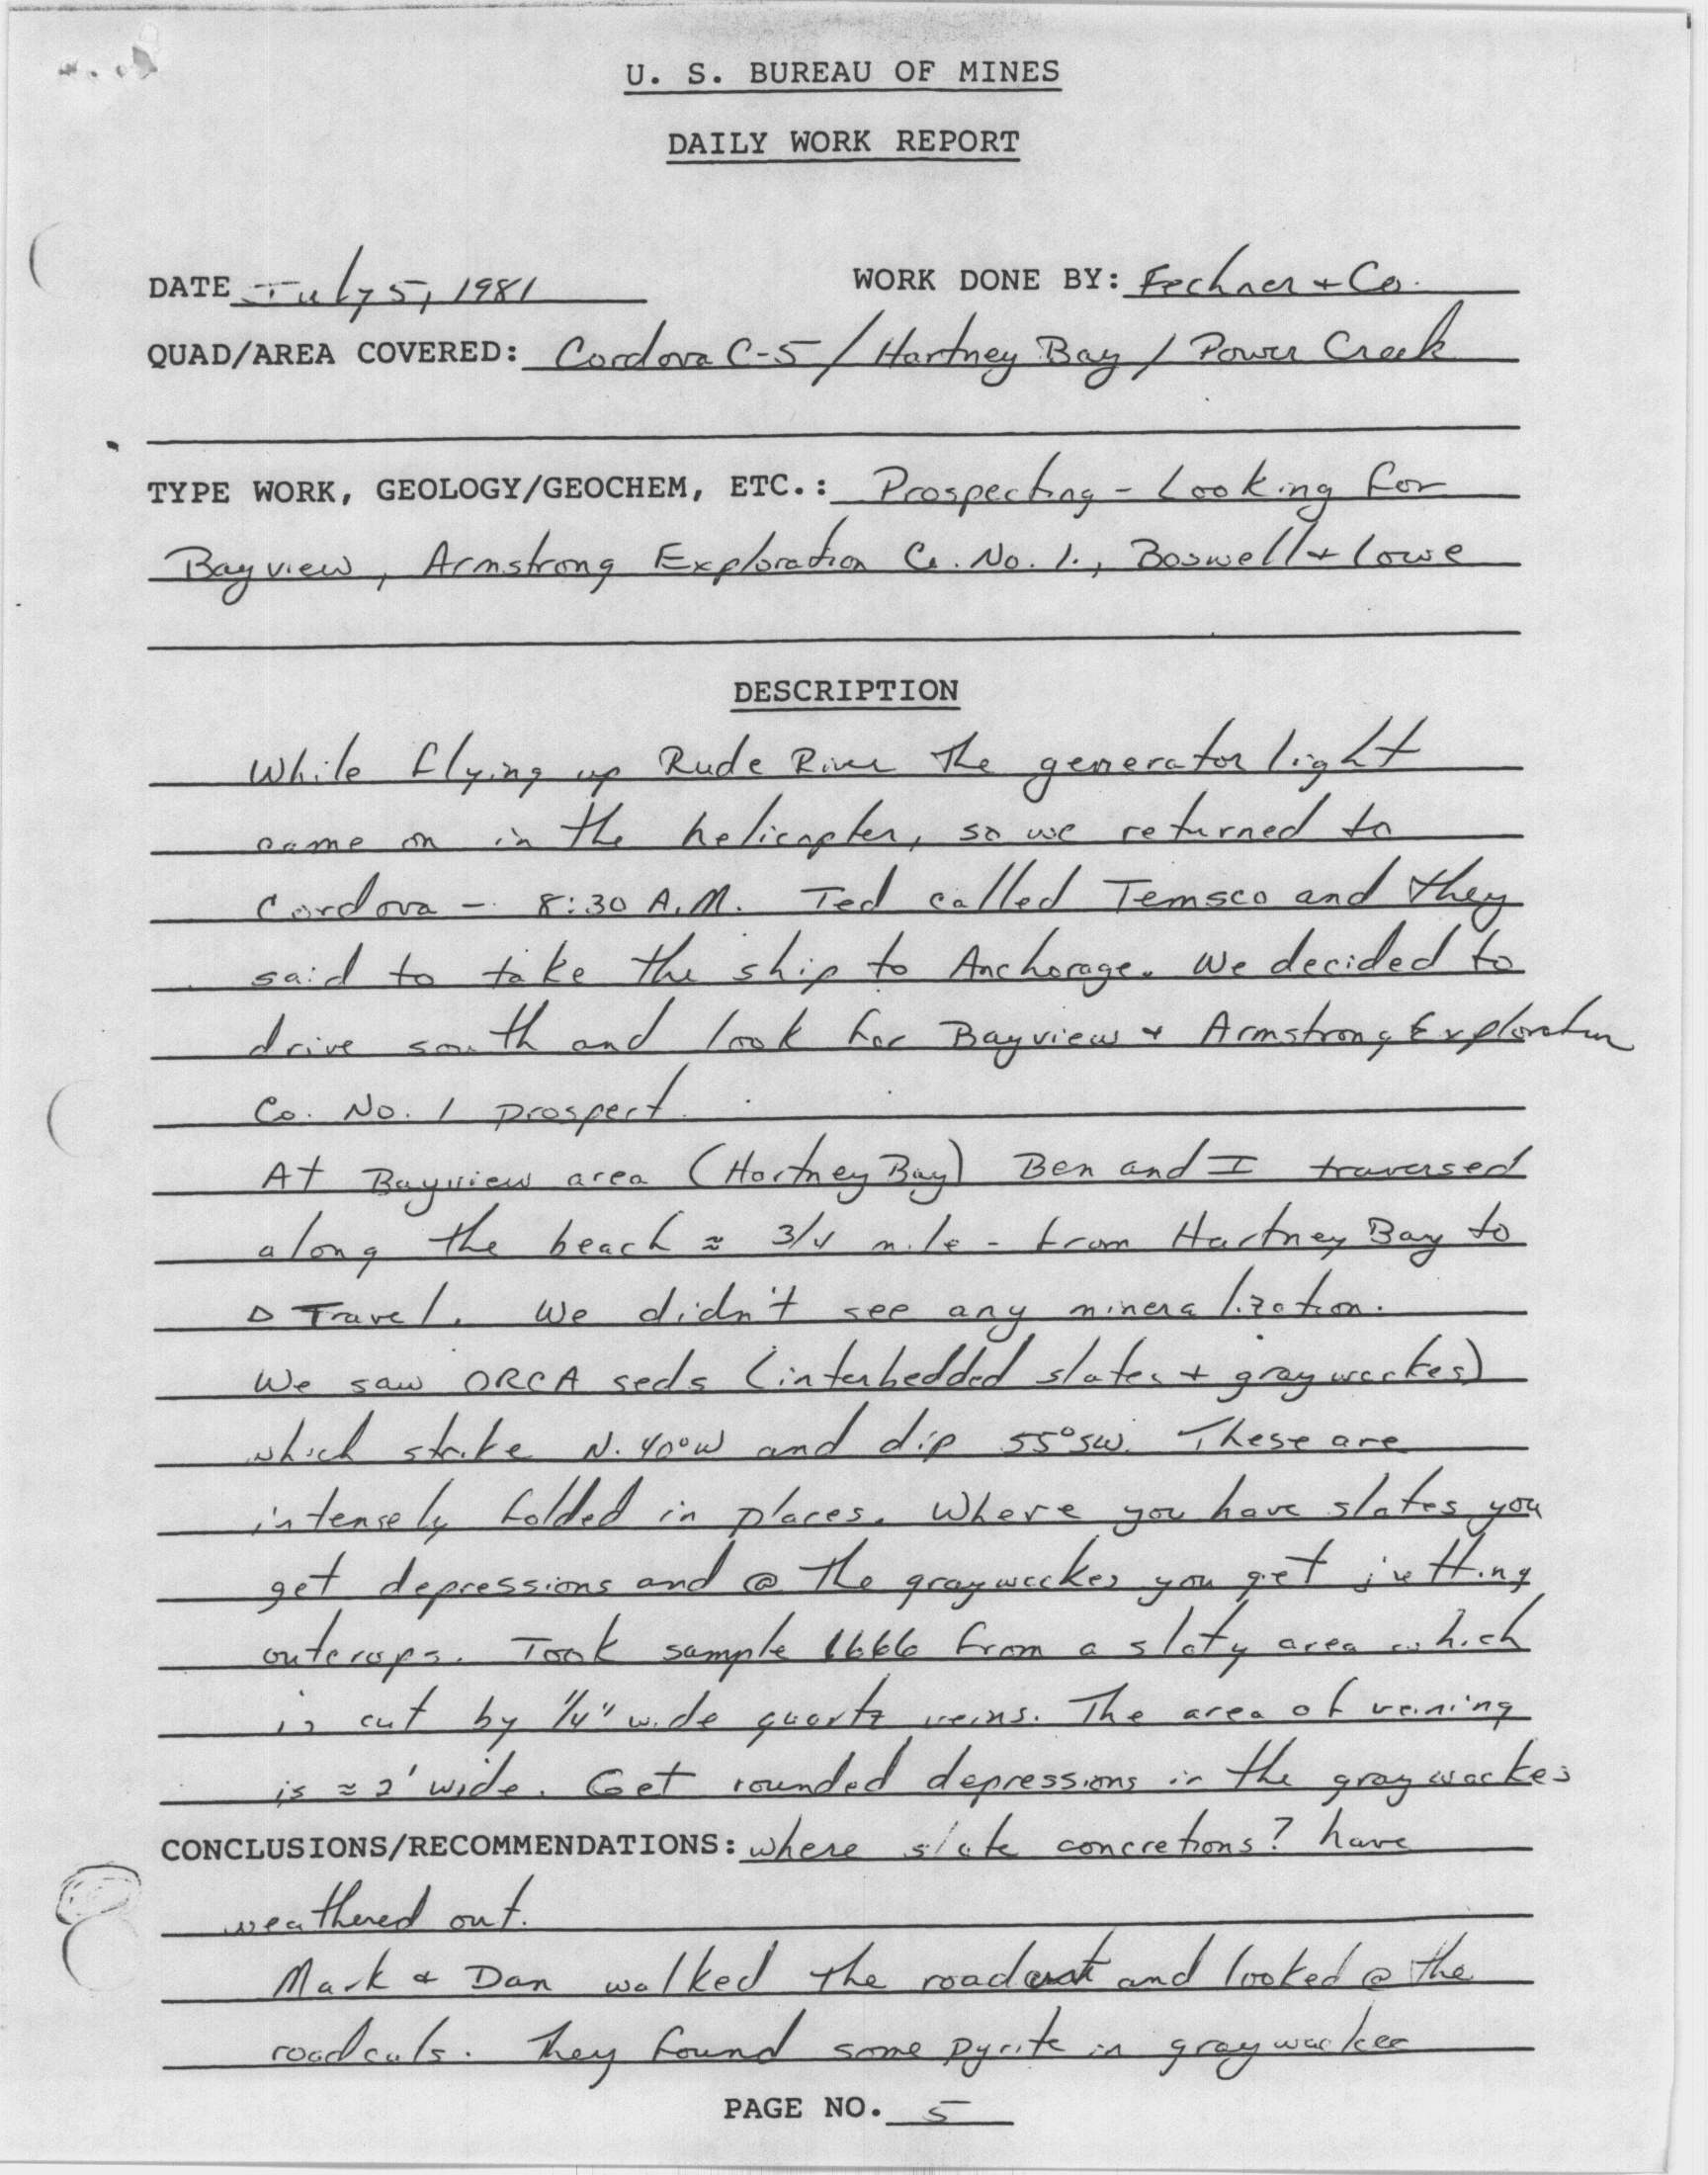 U. S. BUREAU OF MINES
DAILY WORK REPORT
DATE July 5, 1981 WORK DONE BY: Fechner + Co.
QUAD/AREA COVERED: Cordova C-5 / Hartney Bay / Power Creek
TYPE WORK, GEOLOGY/GEOCHEM, ETC.: Prospecting - Looking for
Bayview, Armstrong Exploration Co. No. 1., Boswell + Lowe
DESCRIPTION
While flying up Rude River the generator light
came on in the helicopter, so we returned to
Cordova - 8:30 A.M. Ted called Temsco and they
said to take the ship to Anchorage. We decided to
drive south and look for Bayview + Armstrong Exploration
Co. No. 1 prospect.
At Bayview area (Hartney Bay) Ben and I traversed
along the beach ≈ 3/4 mile - from Hartney Bay to
△ Travel. We didn't see any mineralization.
We saw ORCA seds (interbedded slates + graywackes)
which strike N. 40°W and dip 55°SW. These are
intensely folded in places. Where you have slates you
get depressions and @ the graywackes you get jutting
outcrops. Took sample 1666 from a slaty area which
is cut by 1/4" wide quartz veins. The area of veining
is ≈ 2' wide. Get rounded depressions in the graywackes
CONCLUSIONS/RECOMMENDATIONS: where slate concretions? have
weathered out.
Mark & Dan walked the and looked @ the
roadcuts. They found some pyrite in graywacke
PAGE NO. 5